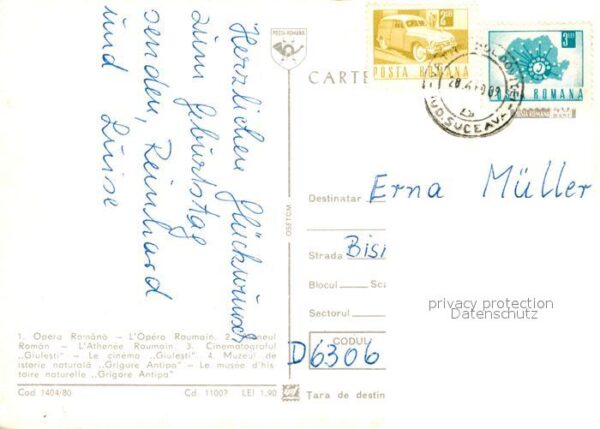 Herzlichen Glückwunsch
zum Geburtstag
senden, Reinhard
und Luise
1. Opera Română — L'Opéra Roumain. 2.
Român — L'Athénée Roumain. 3. Cinematograful
„Giulești" — Le cinéma „Giulești". 4. Muzeul de
istorie naturală „Grigore Antipa" — Le musée d'his
toire naturelle „Grigore Antipa"
Cod 1404/80 Cd. 11007 LEI 1,90
POȘTA ROMÂNĂ
OSETCM
CARTE
2 LEI
POSTA ROMANA
3 LEI
POSTA ROMANA
JUD. SUCEAVA
Destinatar Erna Müller
Strada Bisi
Blocul Sca
Sectorul
CODUL
D6306
Țara de destin
privacy protection
Datenschutz